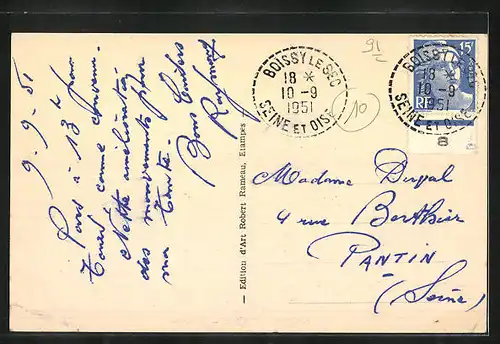 9-9-51
Pars à 13 h pour
Tours comme convenu.
Nette amélioration
des mouvements pour
ma Tante.
Bons baisers
Raymond
— Edition d'Art Robert Rameau, Etampes
91
10
BOISSY LE SEC
18 *
10-9
1951
SEINE ET OISE
BOISSY
18 *
10-9
1951
SEINE ET OISE
15F
RF
8
Madame
4 rue Berthier
PANTIN
(Seine)